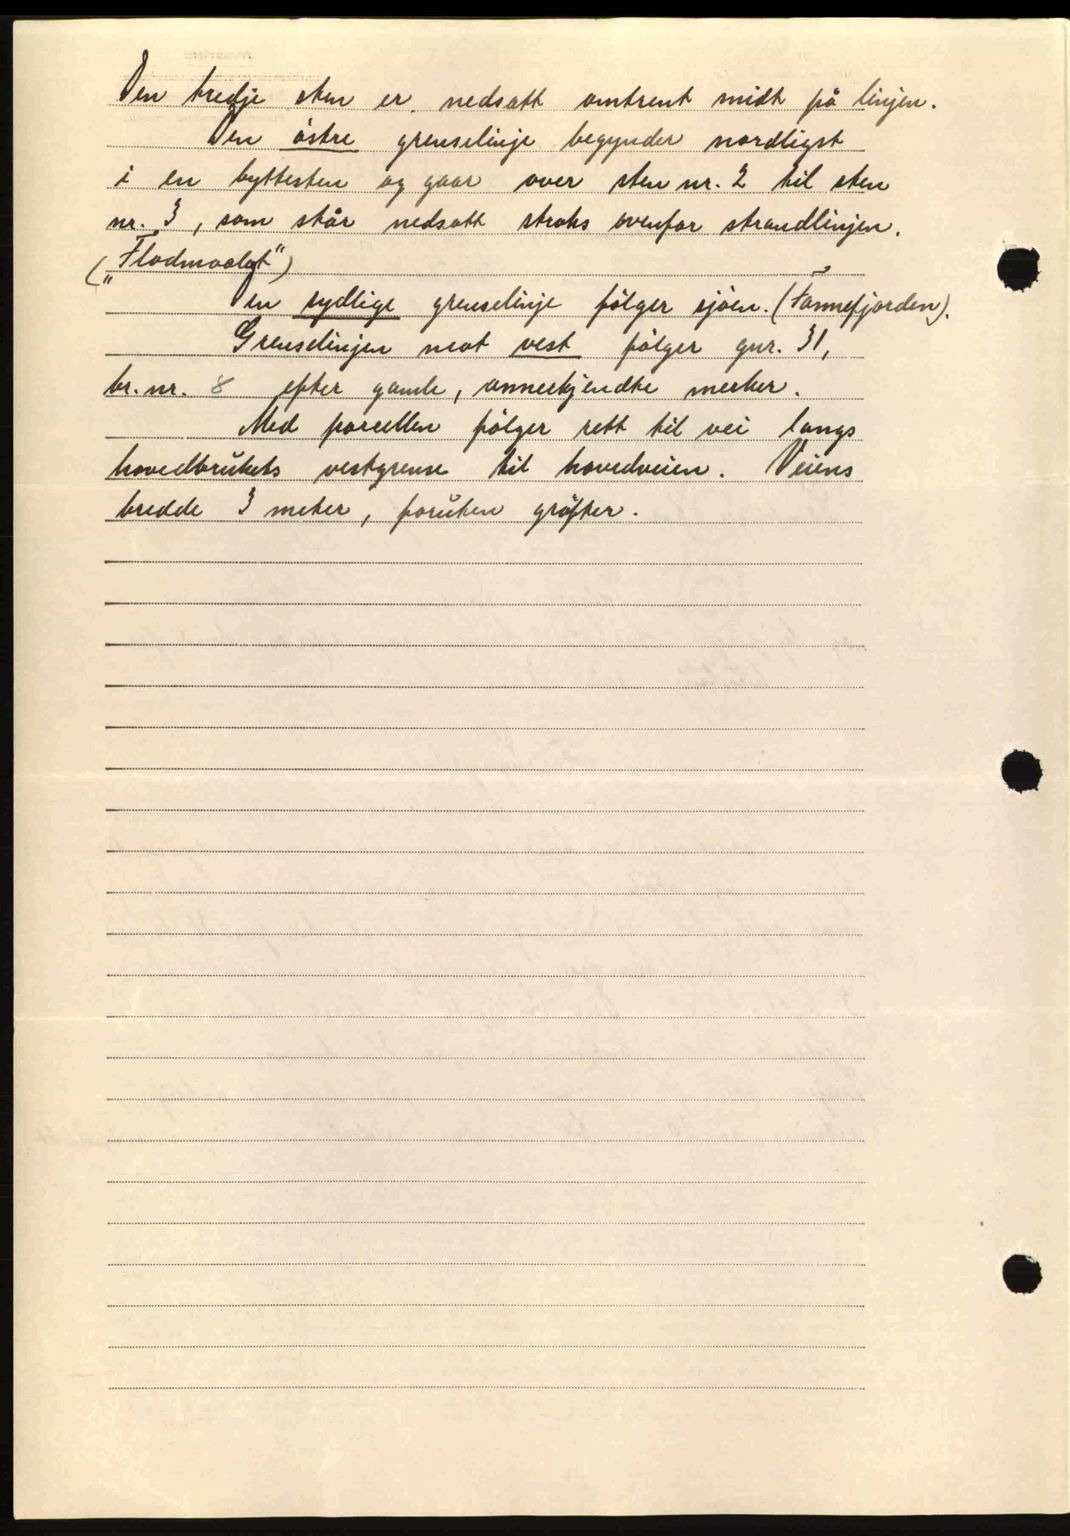 Den tredje sten er nedsatt omtrent midt på linjen.
Den östre grenselinje begynder nordligst
i en byttesten og gaar over sten nr. 2 til sten
nr. 3, som står nedsatt straks ovenfor strandlinjen.
(„Flodmaalet“)
Den sydlige grenselinje fölger sjöen. (Fannefjorden).
Grenselinjen mot vest fölger gnr. 31,
br. nr. 8 efter gamle, annerkjendte merker.
Med parcellen fölger rett til vei langs
hovedbrŭkets vestgrense til hovedveien. Veiens
bredde 3 meter, forŭten gröfter.